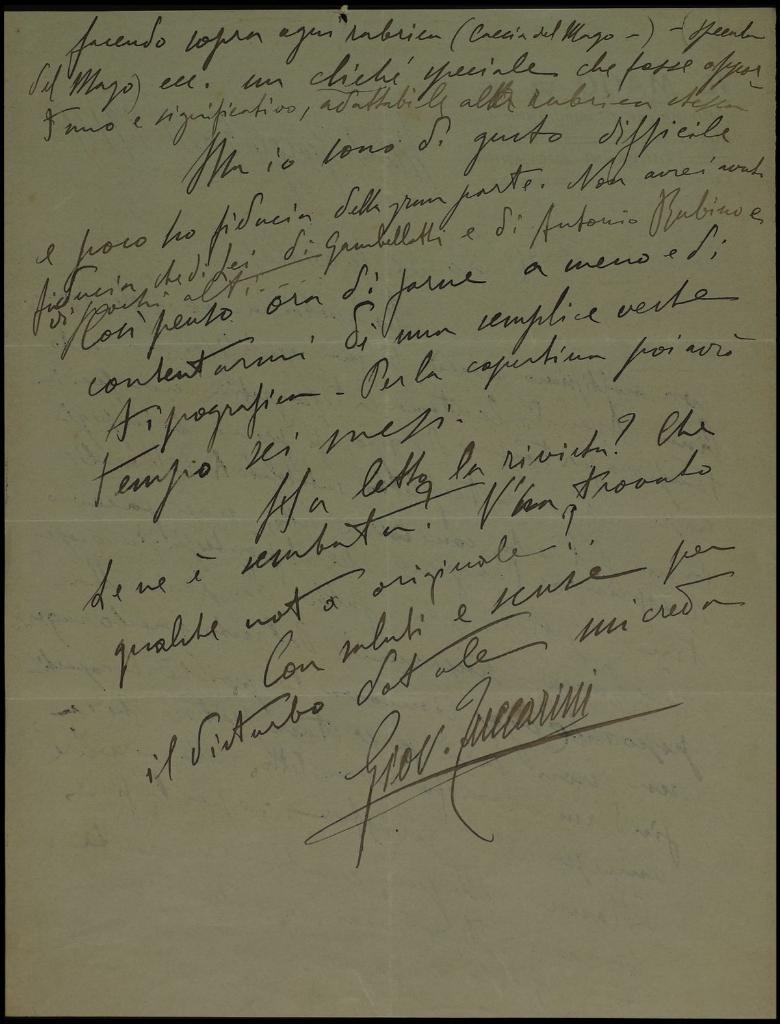 facendo sopra ogni rubrica (Caccia del Mago -) - Specula
del Mago) ecc. un cliché speciale che fosse oppor-
tuno e significativo, adattabile alla rubrica stessa
Ma io sono di gusto difficile
e poco ho fiducia della gran parte. Non avrei avuto
fiducia che di Lei di Gambellotti e di Antonio Rubino e
di pochi altri...
Così penso ora di farne a meno e di
contentarmi di una semplice veste
tipografica - Per la copertina poi avrò
tempo sei mesi.
Ha letto la rivista? Che
Le ne è sembrata? V'ha trovato
qualche nota originale?
Con saluti e scuse per
il disturbo datole mi creda
Giov. Zuccarini